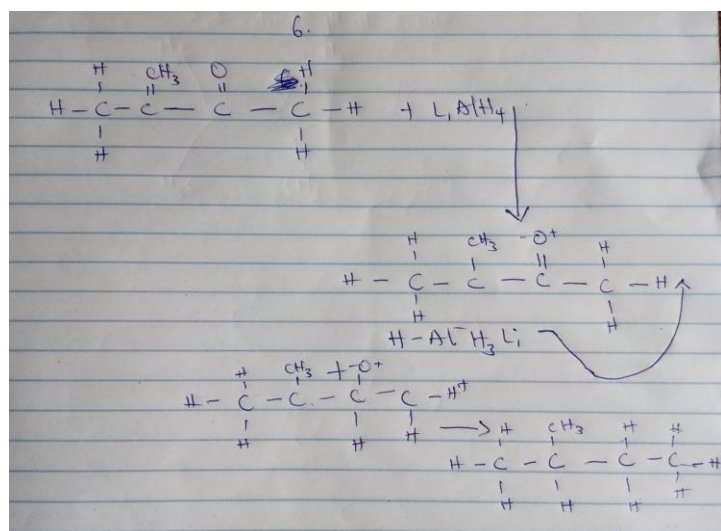 6.
H CH3 O H
H - C - C - C - C - H + LiAlH4
H H
H CH3 -O+ H
H - C - C - C - C - H
H H
H - Al- H3 Li
H CH3 + -O+
H - C - C - C - C - H+
H H H
H CH3 H H
H - C - C - C - C - H
H H H H